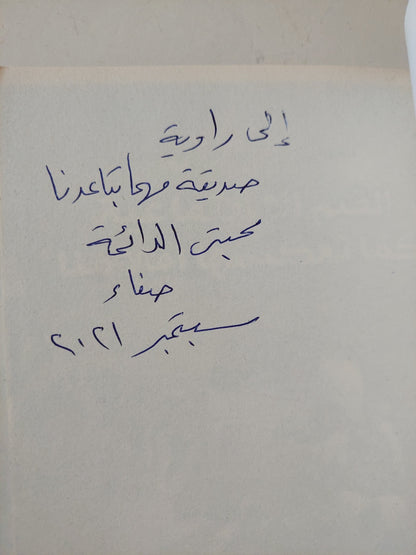 إلى راوية
صديقة مهما تباعدنا
محبتى الدائمة
صفاء
سبتمبر ٢٠٢١